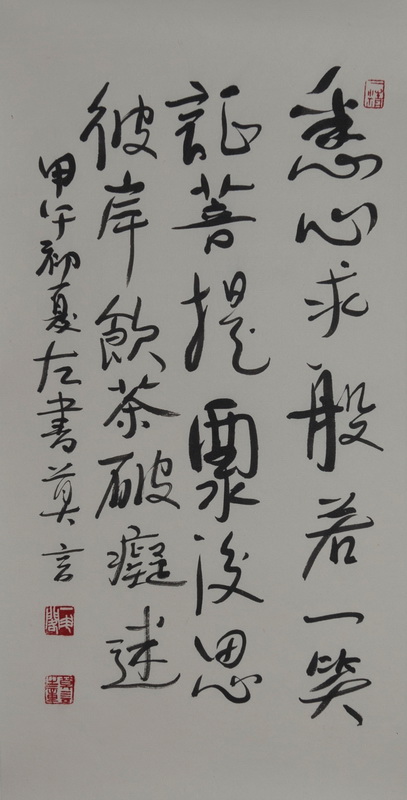 悉心求般若一笑
証菩提後思
彼岸飲茶破癡迷
甲午初夏左書莫言